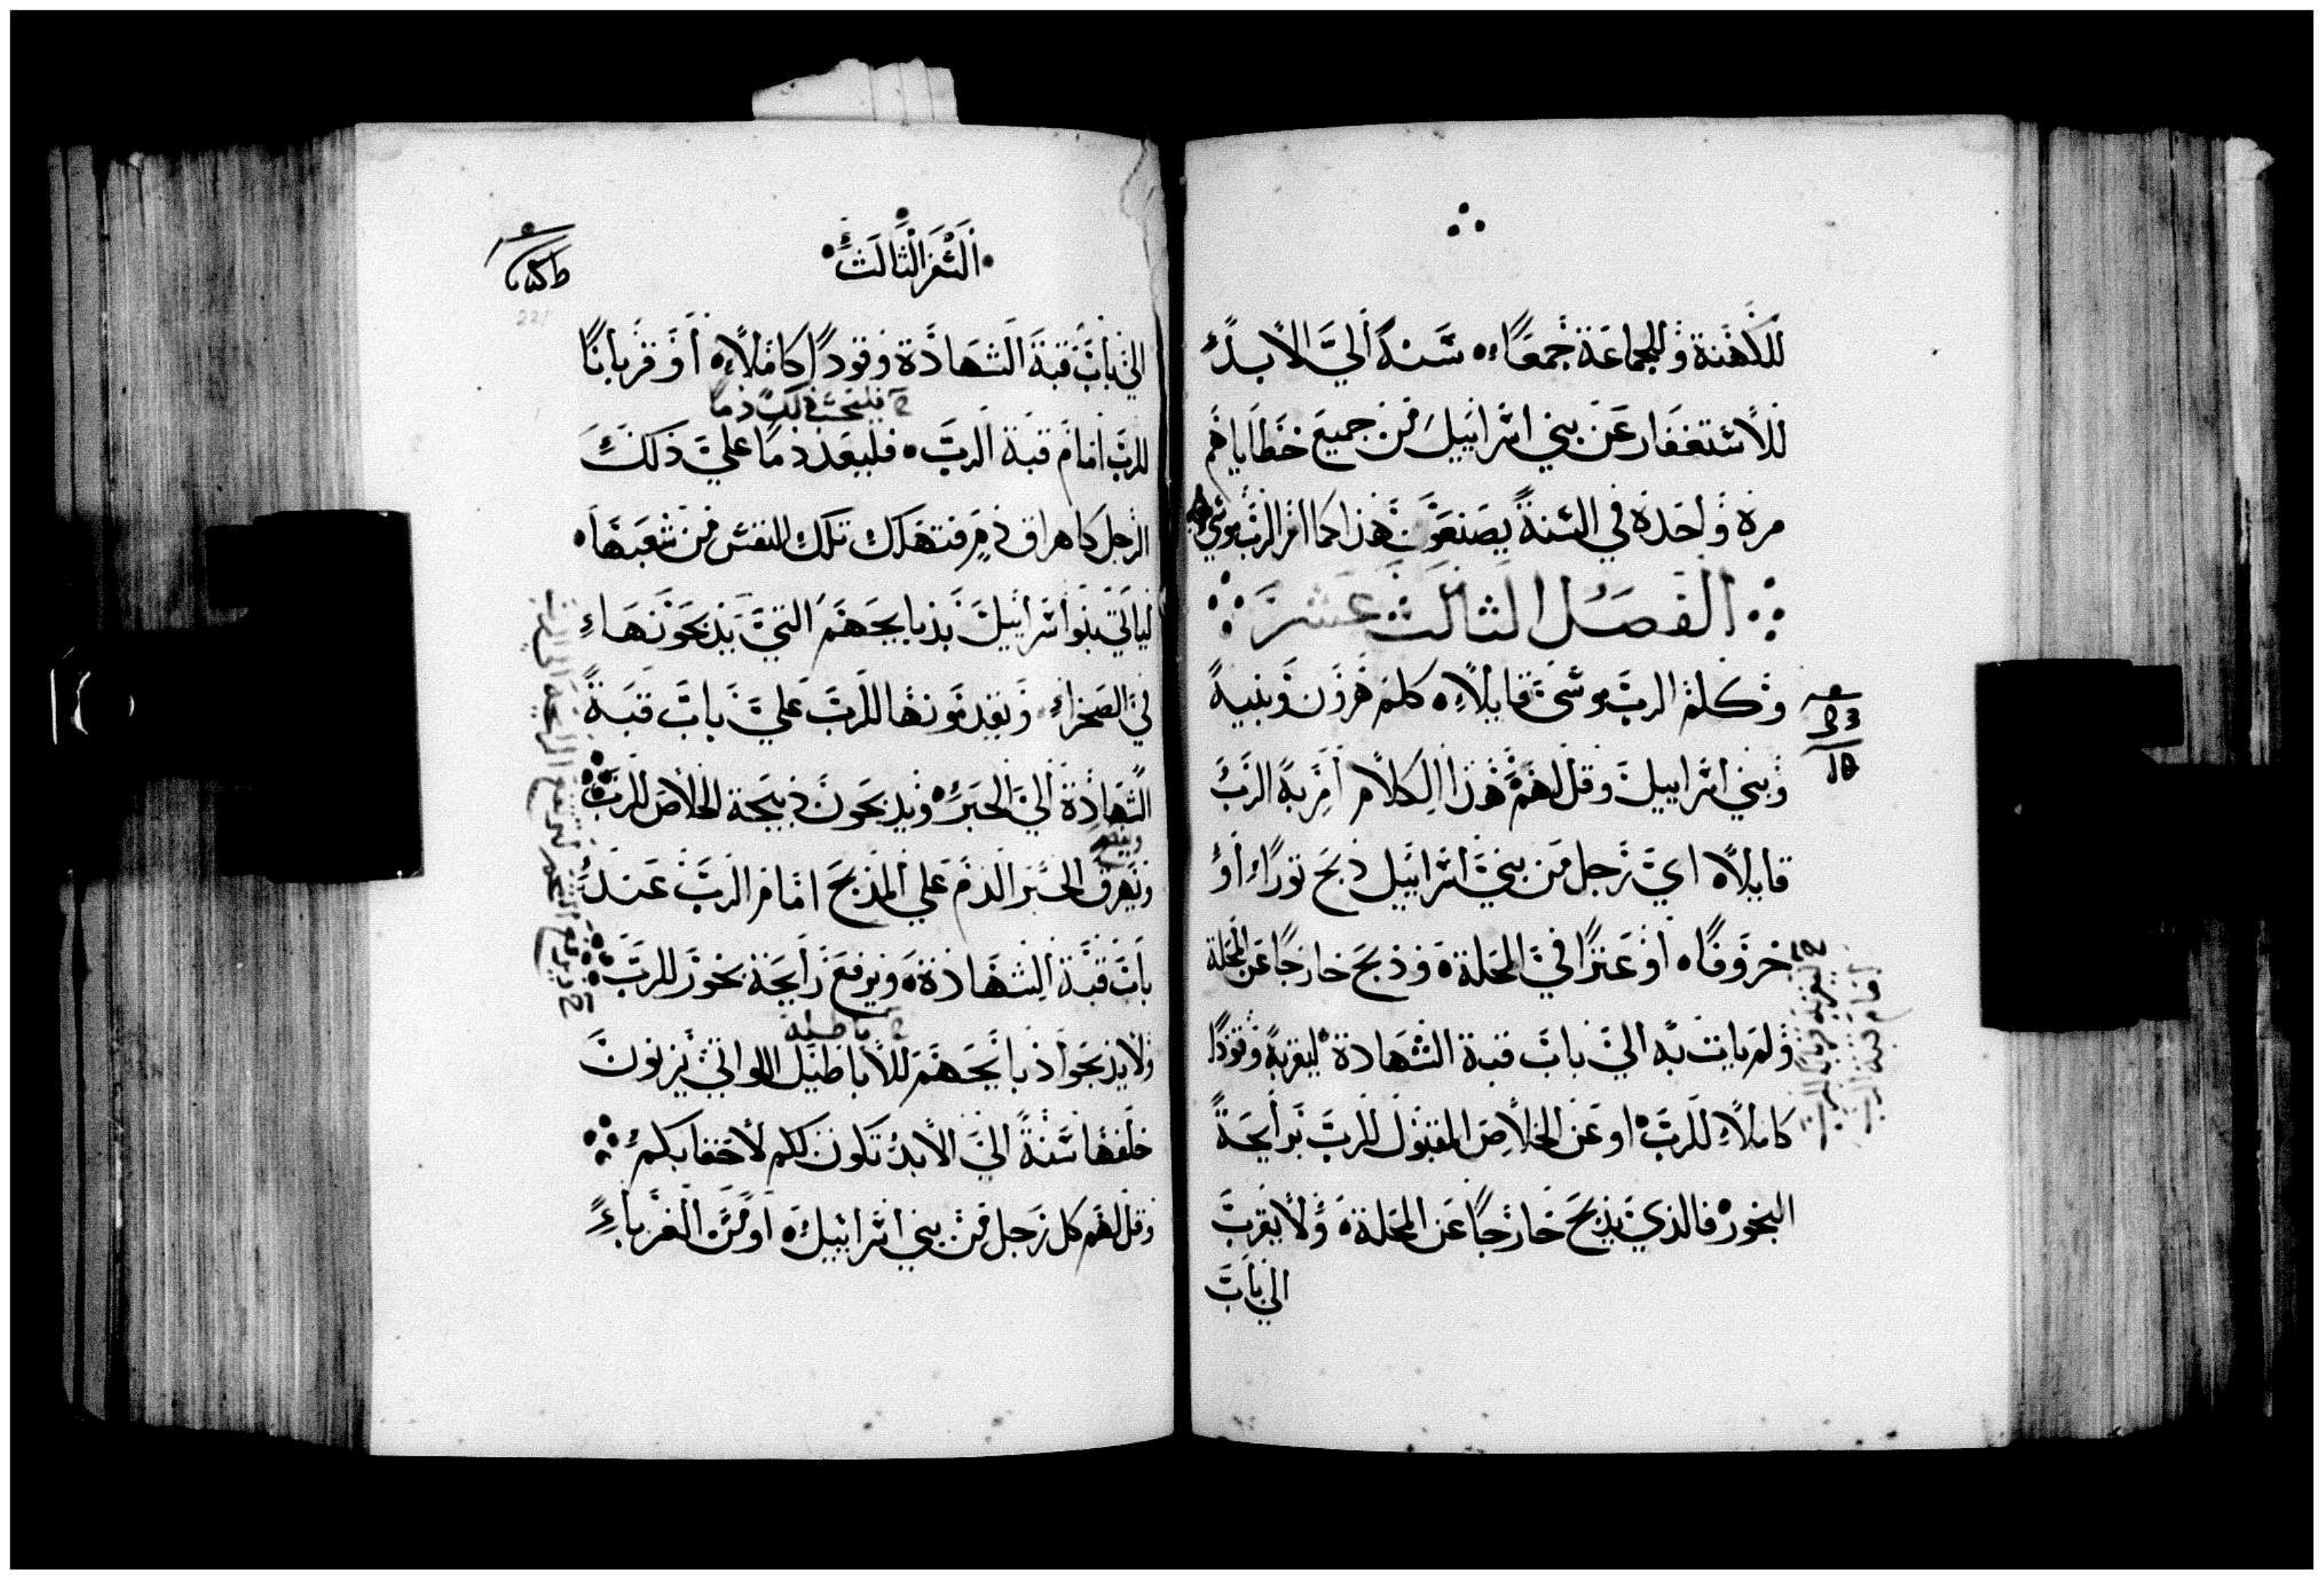 للكهنة وللجماعة جمعًا ٥ سنة الي الابد
للاستغفار عن بني اسراييل من جميع خطاياهم
مرة واحدة في السنة يصنعون هذا كما امر الرب موسي
الفصل الثالث عشر
وكلم الرب موسي قايلًا ٥ كلم هرون وبنيه
وبني اسراييل وقل لهم هذا الكلام امر به الرب
قايلًا ٥ اي رجل من بني اسراييل ذبح ثورًا او
خروفًا ٥ او عنزًا في المحلة ٥ وذبح خارجًا عن المحلة
ولم يات به الي باب قبة الشهادة ليقربه وقودًا
كاملًا للرب ٥ او عن الخلاص المقبول للرب برايحة
البخور فالذي يذبح خارجًا عن المحلة ٥ ولا يقرب
الي باب
السفر الثالث
221
الي باب قبة الشهادة وقودًا كاملًا ٥ او قربانًا
للرب امام قبة الرب ٥ فليعد دمًا علي ذلك
الرجل كما هراق دم فتهلك تلك النفس من شعبها ٥
لياتي بنو اسراييل بذبايحهم التي يذبحونها
في الصحراء ويقدمونها للرب علي باب قبة
الشهادة الي الحبر ٥ ويذبحون ذبيحة الخلاص للرب
ويهرق الحبر الدم علي المذبح امام الرب عند
باب قبة الشهادة ٥ ويرفع رايحة بخور للرب
ولا يذبحوا ذبايحهم للاباطيل اللواتي يزنون
خلفها سنة الي الابد تكون لكم لاحقابكم
وقل لهم كل رجل من بني اسراييل ٥ او من الغرباء